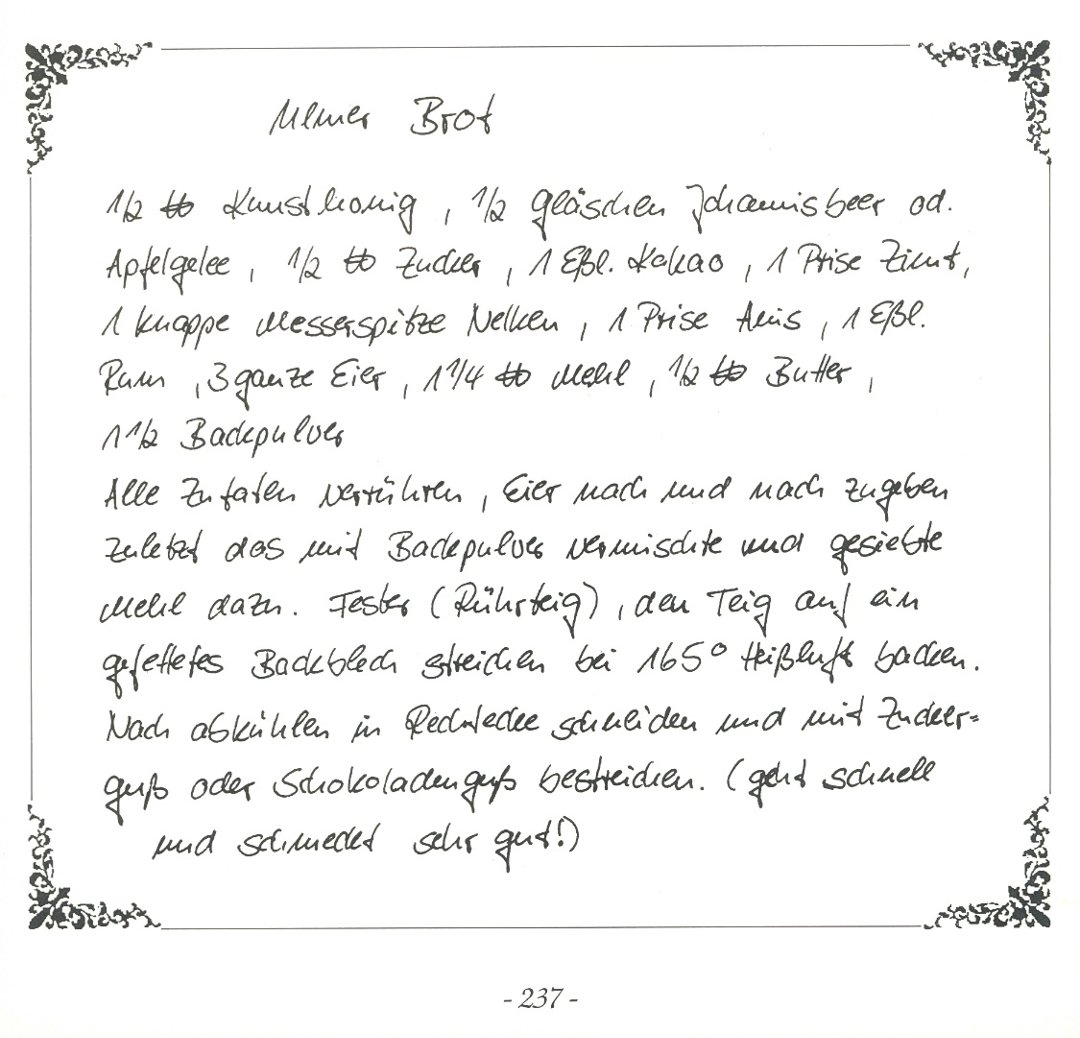 Ulmer Brot
1/2 ℔ Kunsthonig, 1/2 Gläschen Johannisbeer od.
Apfelgelee, 1/2 ℔ Zucker, 1 Eßl. Kakao, 1 Prise Zimt,
1 knappe Messerspitze Nelken, 1 Prise Anis, 1 Eßl.
Rum, 3 ganze Eier, 1 1/4 ℔ Mehl, 1/2 ℔ Butter,
1 1/2 Backpulver
Alle Zutaten verrühren, Eier nach und nach zugeben
zuletzt das mit Backpulver vermischte und gesiebte
Mehl dazu. Fester (Rührteig), den Teig auf ein
gefettetes Backblech streichen bei 165° Heißluft backen.
Nach abkühlen in Rechtecke schneiden und mit Zucker=
guß oder Schokoladenguß bestreichen. (geht schnell
und schmeckt sehr gut!)
- 237 -